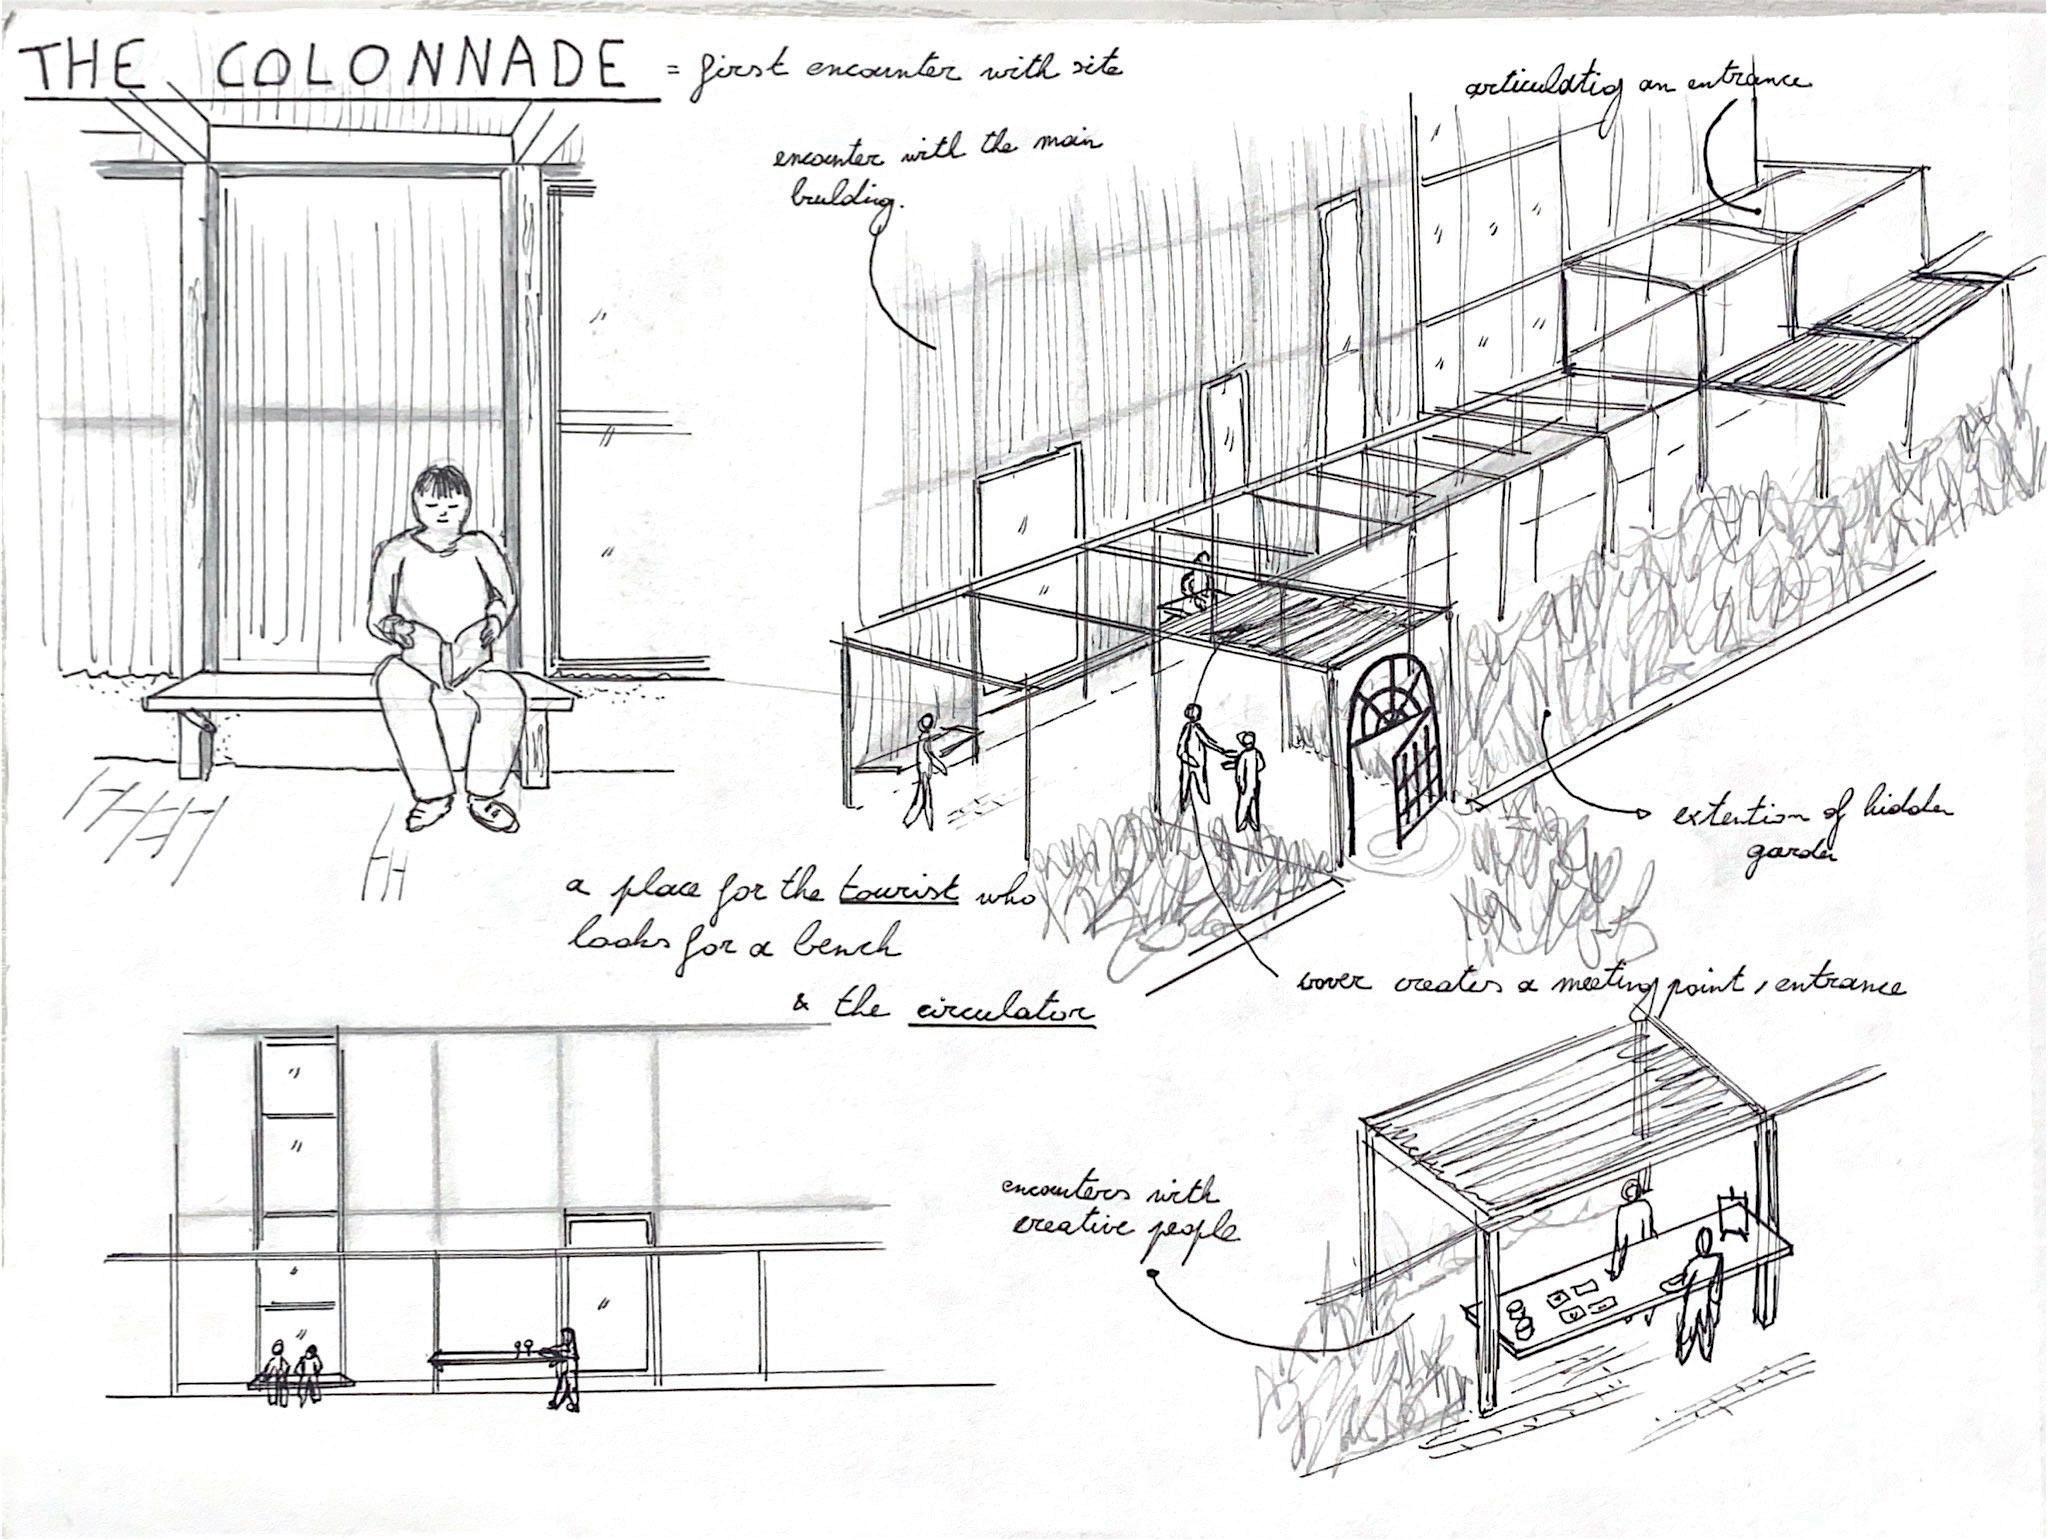 THE COLONNADE = first encounter with site
articulatig an entrance
encounter with the main
building.
a place for the tourist who
looks for a bench
& the circulator
extention of hidden
garden
cover creates a meeting point, entrance
encounters with
creative people